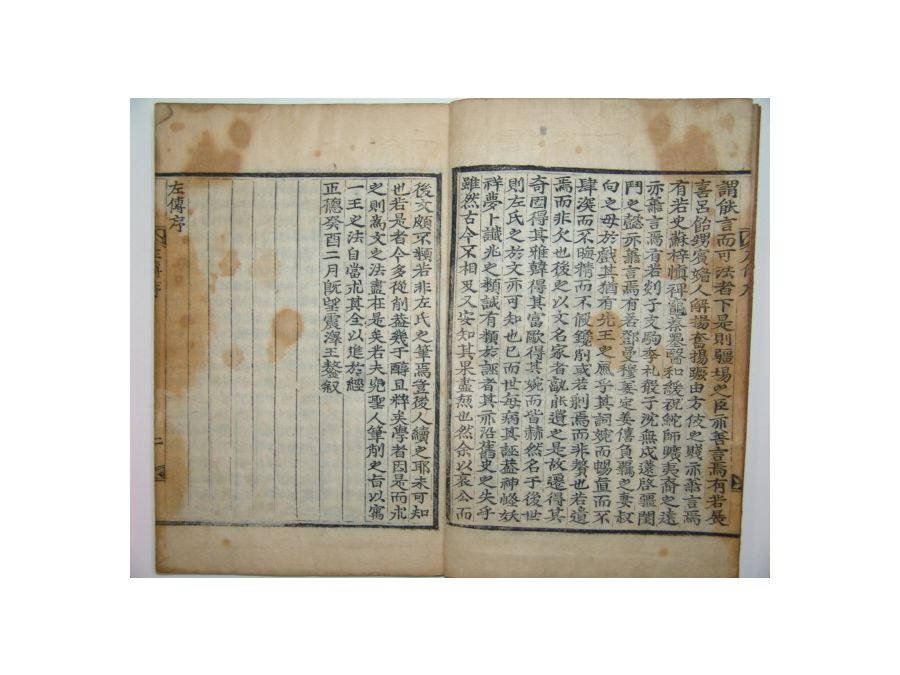 謂能言而可法者下是則疆場之臣亦善言焉有若展
喜呂飴甥賓媚人解揚奮揚蹶由方伎之賤亦善言焉
有若史蘇梓愼裨竈蔡墨醫和緩祝鮀師曠夷裔之遠
亦善言焉有若剡子支駒季札子沈無戍薳啓疆閨
鬥之懿亦善言焉有若鄧曼穆姜定姜僖負羈之妻叔
向之母於戲其猶有先王之風乎其詞婉而暢直而不
肆深而不晦精而不假鑱削或若剩焉而非贅也若遺
焉而非欠也後之以文名家者孰能遺之是故遷得其
奇固得其雅韓得其富歐得其婉而皆赫然名于後世
則左氏之於文亦可知也已而世每病其誣蓋神怪妖
祥夢卜讖兆之類誠有類於誣者其亦沿舊史之失乎
雖然古今不相及又安知其果盡無也然余以哀公而
後文頗不類若非左氏之筆焉豈後人續之耶未可知
也若是者今多從削蓋幾于醇且粹矣學者因是而求
之則爲文之法盡在是矣若夫究聖人筆削之旨以寓
一王之法自當求其全以進於經
正德癸酉二月旣望震澤王鏊叙
左傳序
左傳序 二